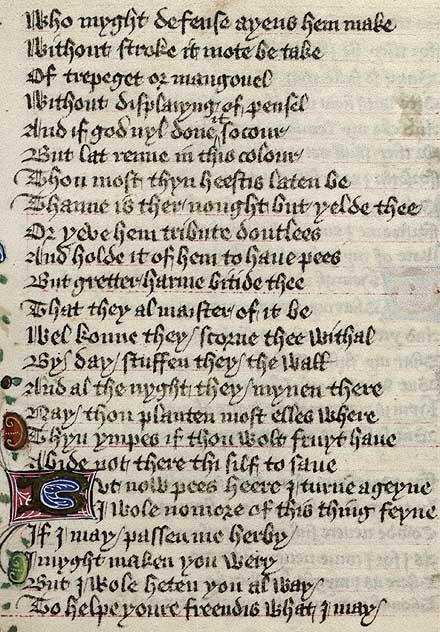 Who myght defense ayens hem make
Without stroke it mote be take
Of trepeget or mangonel
Without displaiyng of pensel
And if god nyl done it socour
But lat renne in this colour
Thou most thyn heestis laten be
Thanne is ther nought but yelde thee
Or yeve hem tribute doutlees
And holde it of hem to have pees
But gretter harme bitide thee
That they al maister of it be
Wel konne they scorne thee withal
By day stuffen they the wall
And al the nyght they mynen there
Nay thou planten most elles where
Thyn ympes if thou wolt fruyt have
Abide not there thi silf to save
But now pees heere I turne ageyne
I wole nomore of this thing feyne
If I may passen me herby
I myght maken you wery
But I wole heten you al way
To helpe youre freendis what I may